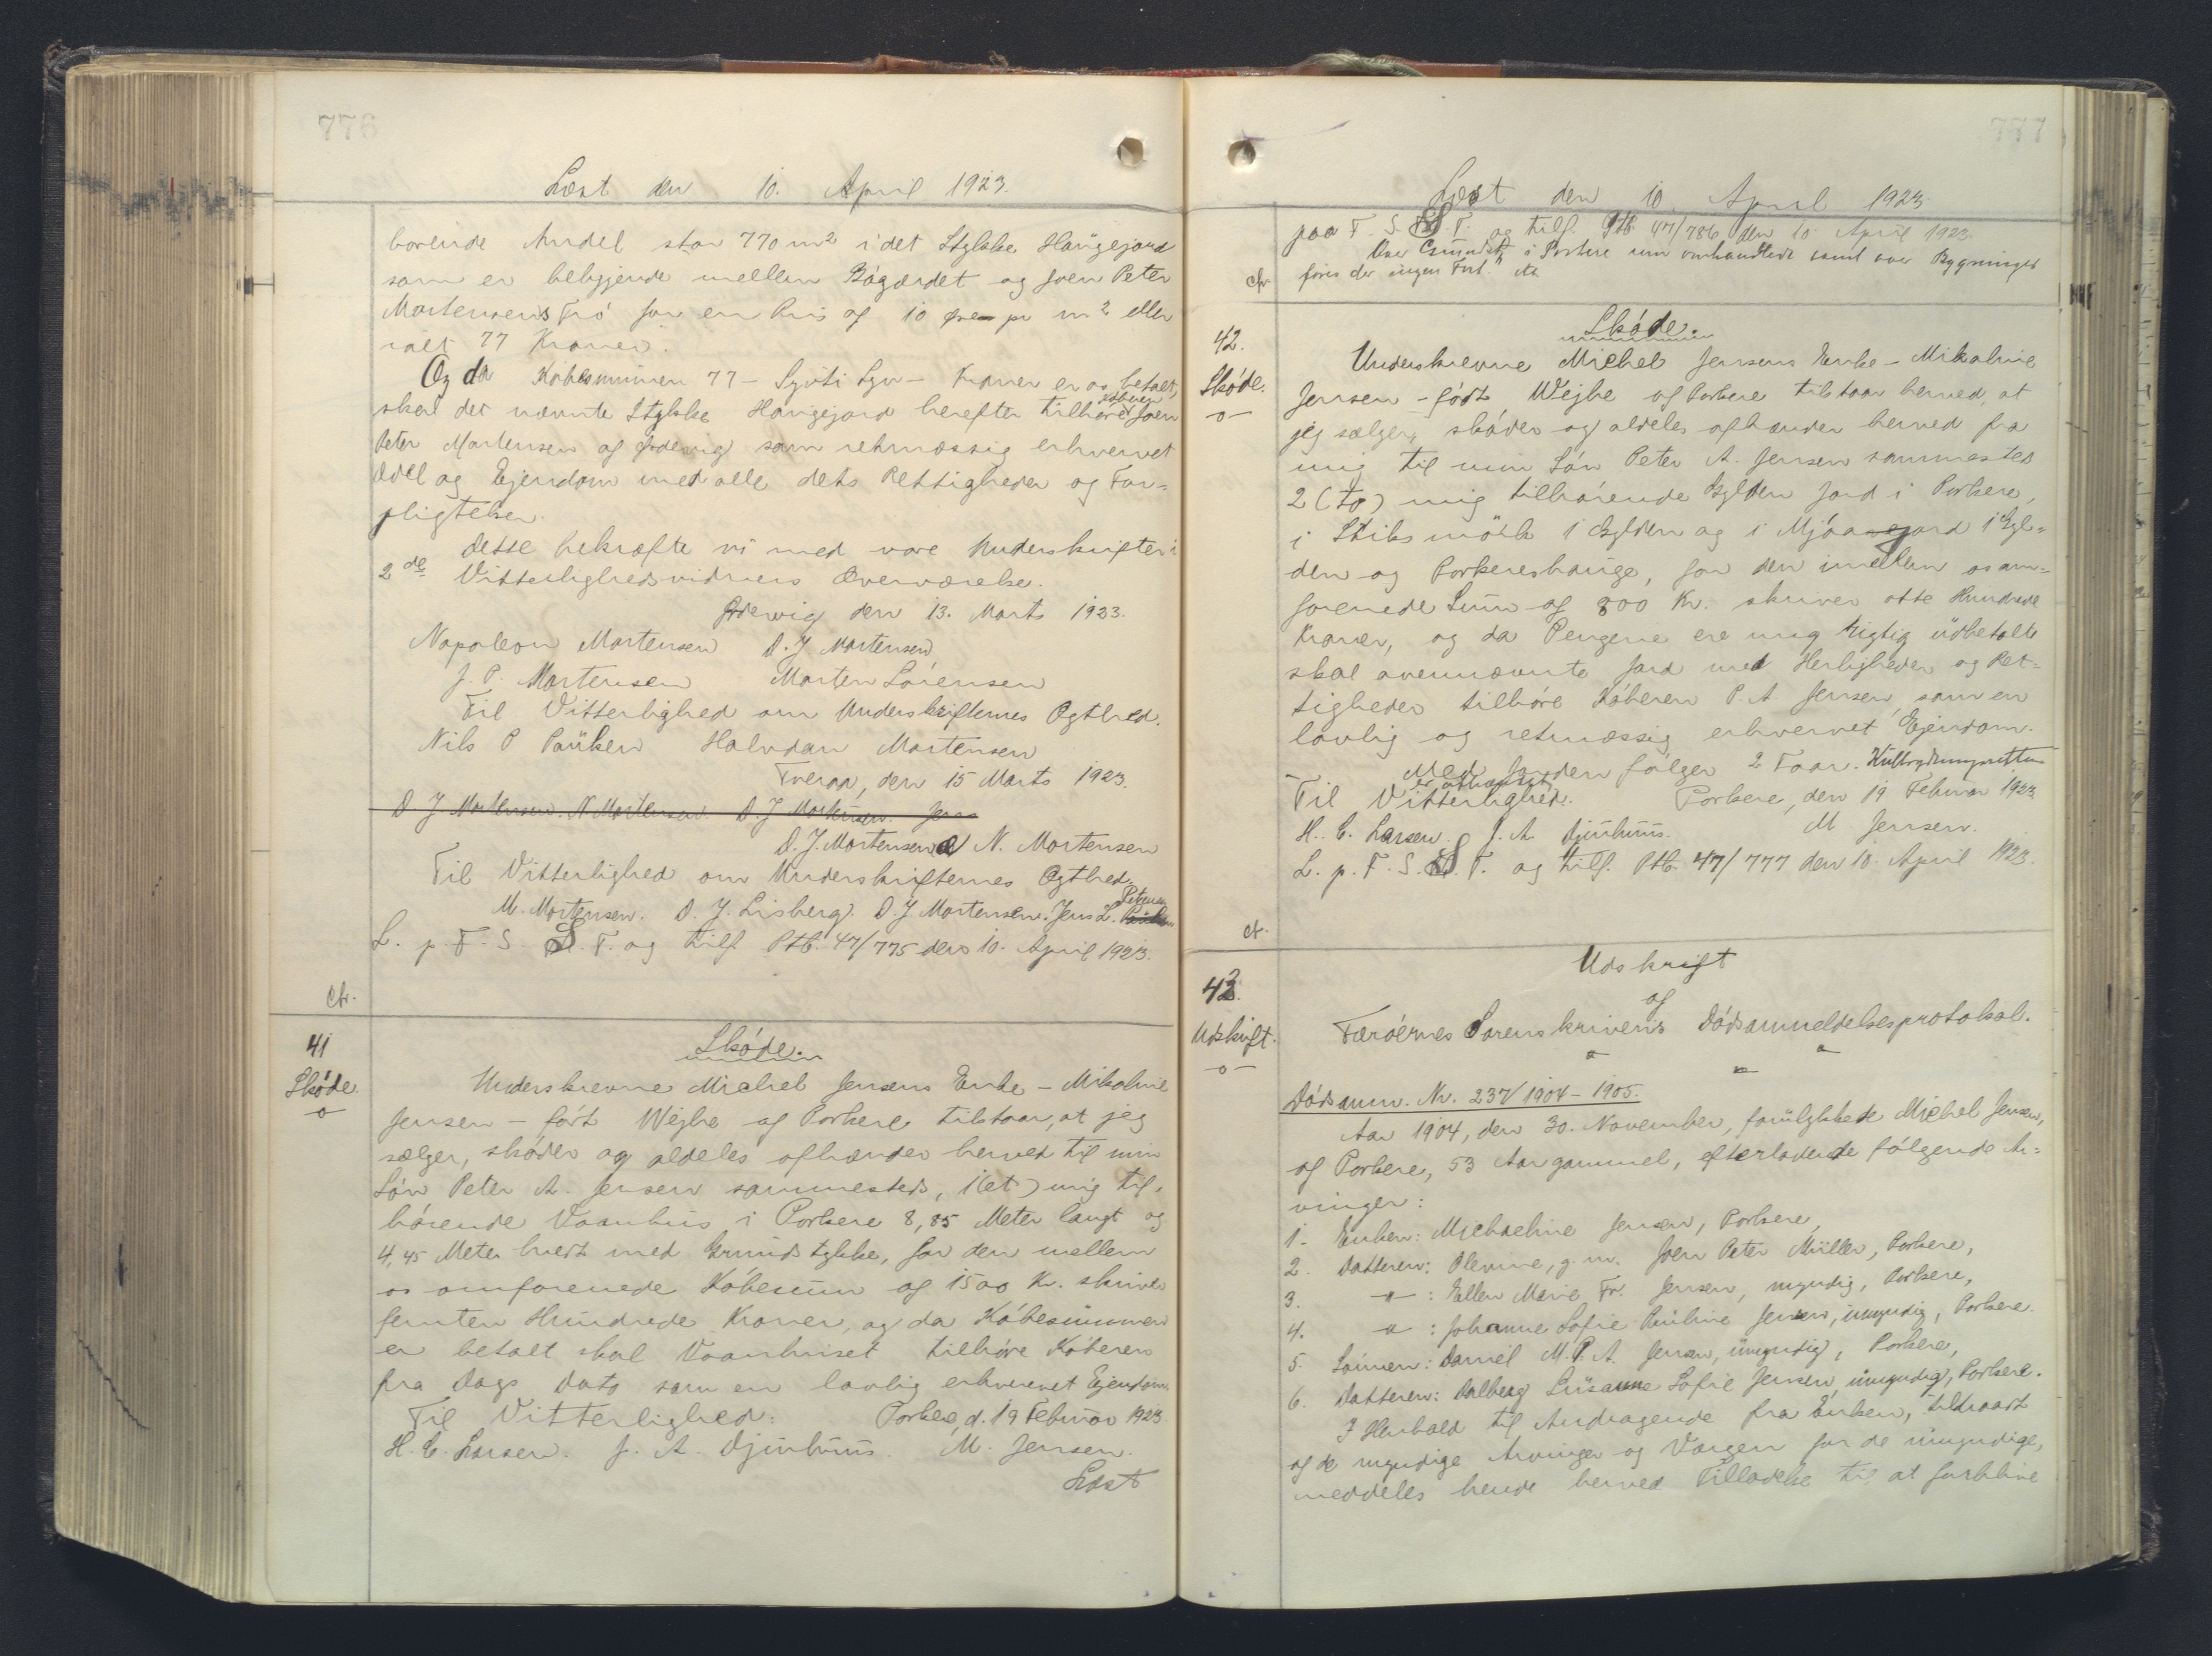 776
Læst den 10. April 1923.
hørende Andel stor 770 m2 i det Stykke Haugejord
som er beliggende mellem Bøgærdet og Joen Peter
Mortensens Trö for en Pris af 10 Øre pr m2 eller
ialt 77 Kroner.
Og da Købesummen 77 - Syvti Syv - Kroner er os betalt,
skal det nævnte Stykke Haugejord herefter tilhøre Joen
Peter Mortensen af Ørdewig som retmæssig erhvervet
Odel og Ejendom med alle dets Rettigheder og For-
pligtelser.
Dette bekræfte vi med vore Underskrifter i
2de Vitterlighedsvidners Overværelse.
Ørdewig den 13. Marts 1923.
Napoleon Mortensen D. J Mortensen
J. P. Mortensen Morten Sörensen
Til Vitterlighed om Underskrifternes Ægthed.
Nils P Paulsen Halvdan Mortensen
Tveraa, den 15 Marts 1923.
D J Mortensen. N Mortensen. D. J Mortensen. Jens
D. J. Mortensen N. Mortensen
Til Vitterlighed om Underskrifternes Ægthed.
Petersen
M. Mortensen. D. J. Lisberg. D. J Mortensen. Jens L.
L. p. F. S. S. T. og tilf Ptb. 47/775 den 10. April 1923.
Cfr.
41
Sköde.
Sköde
-o-
Underskrevne Michel Jensens Enke - Mikoline
Jensen - födt Wejhe af Porkere tilstaar, at jeg
sælger, sköder og aldeles afhænder herved til min
Sön Peter A. Jensen sammesteds, 1(et) mig til-
hörende Vaanhus i Porkere 8,85 Meter langt og
4,45 Meter bredt med Grundstykke, for den mellem
os omforenede Köbesum af 1500 Kr. skriver
femten Hundrede Kroner, og da Köbesummen
er betalt skal Vaanhuset tilhöre Köberen
fra Dags Dato som en lovlig erhvervet Ejendom.
Til Vitterlighed: Porkere, d. 19 Februar 1923.
H. C. Larsen. J. A. Djurhuus. M. Jensen.
Læst
777
Læst den 10. April 1923
paa F. S. S. T. og tilf. Ptb. 47/786 den 10. April 1923.
Over Grundstk i Porkere um omhandlede samt over Bygninger
føres der ingen Fort.
Cfr.
42.
Sköde.
Sköde.
-o-
Underskrevne Michel Jensens Enke - Mikoline
Jensen - födt Wejhe af Porkere tilstaar herved, at
jeg sælger, sköder og aldeles afhænder herved fra
mig til min Sön Peter A. Jensen sammesteds
2 (to) mig tilhörende Gylden Jord i Porkere,
i Stiksmörk 1 Gylden og i Mjóanejord 1 Gyl-
den og Porkereshauge, for den imellem os om-
forenede Sum af 800 Kr. skriver otte Hundrede
Kroner, og da Pengene ere mig rigtig udbetalte
skal ovennævnte Jord med Herligheder og Ret-
tigheder tilhöre Köberen P. A Jensen som en
lovlig og retmæssig erhvervet Ejendom.
Med Jorden følger 2 Faar.
Til Vitterlighed. Porkere, den 19 Februar 1923.
H. C. Larsen J. A. Djurhuus. M Jensen.
L. p. F. S. S. T. og tilf. Ptb. 47/777 den 10. April 1923.
Cfr.
43.
Udskrift
Udskrift.
-o-
af
Færöernes Sorenskriveris Dödsanmeldelsesprotokol.
Dödsanm. Nr. 237/1904-1905.
Aar 1904, den 30. November, forulykkede Michel Jensen,
af Porkere, 53 Aar gammel, efterladende følgende Ar-
vinger:
1. Enken: Michaeline Jensen, Porkere,
2. Datteren: Olevine, g. m. Joen Peter Müller, Porkere,
3. -"- : Ellen Marie Fr. Jensen, myndig, Porkere,
4. -"- : Johanne Sofie Pauline Jensen, umyndig, Porkere.
5. Sönnen: Daniel M. P. A. Jensen, umyndig, Porkere,
6. Datteren: Dalberg Susanne Sofie Jensen, umyndig, Porkere.
I Henhold til Andragende fra Enken, tiltraadt
af de myndige Arvinger og Værgen for de umyndige,
meddeles hende herved Tilladelse til at forblive